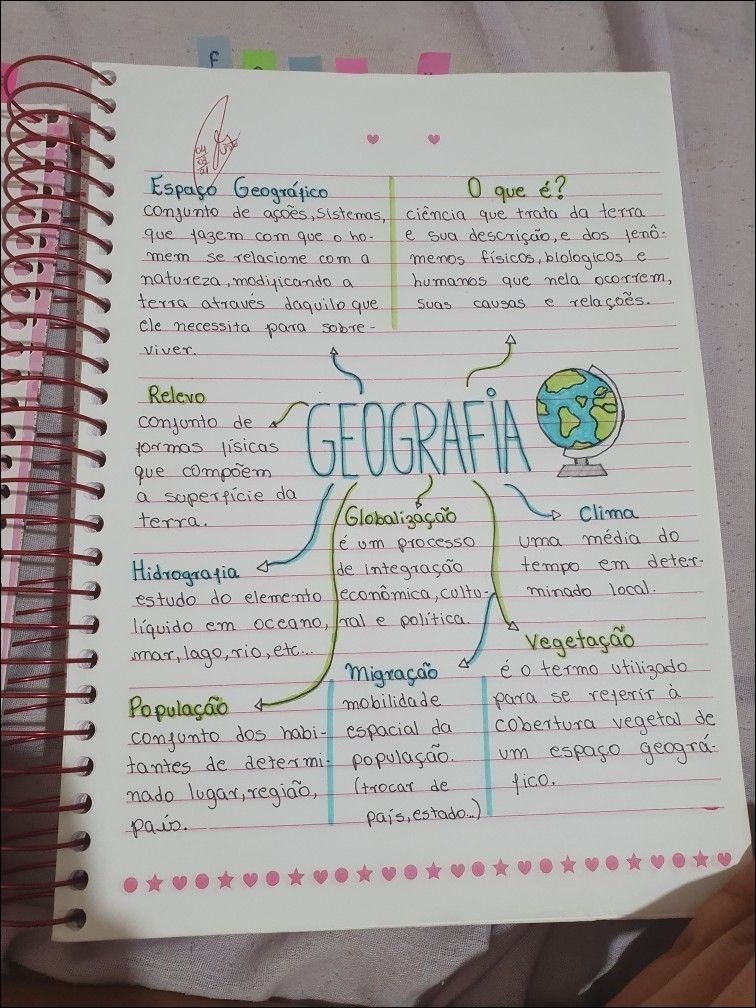 F
04
03
21
Espaço Geográfico
conjunto de ações, sistemas,
que fazem com que o ho-
mem se relacione com a
natureza, modificando a
terra através daquilo que
ele necessita para sobre-
viver.
O que é?
ciência que trata da terra
e sua descrição, e dos fenô-
menos físicos, biologicos e
humanos que nela ocorrem,
suas causas e relações.
GEOGRAFIA
Relevo
conjunto de
formas físicas
que compõem
a superfície da
terra.
Globalização
é um processo
de integração
econômica, cultu-
ral e política.
Clima
uma média do
tempo em deter-
minado local.
Hidrografia
estudo do elemento
líquido em oceano,
mar, lago, rio, etc...
Vegetação
é o termo utilizado
para se referir à
cobertura vegetal de
um espaço geográ-
fico.
Migração
mobilidade
espacial da
população.
(trocar de
país, estado...)
População
conjunto dos habi-
tantes de determi-
nado lugar, região,
país.